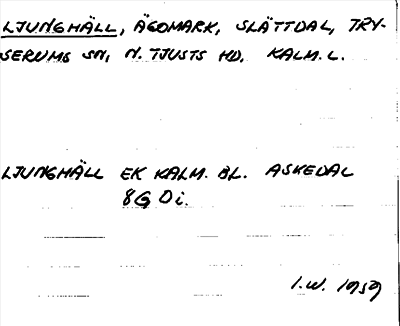 LJUNGHÄLL, ÄGOMARK, SLÄTTDAL, TRY-
SERUMS SN, N. TJUSTS HD, KALM. L.
LJUNGHÄLL EK KALM. BL. ASKEDAL
8G Di.
I.W. 1959